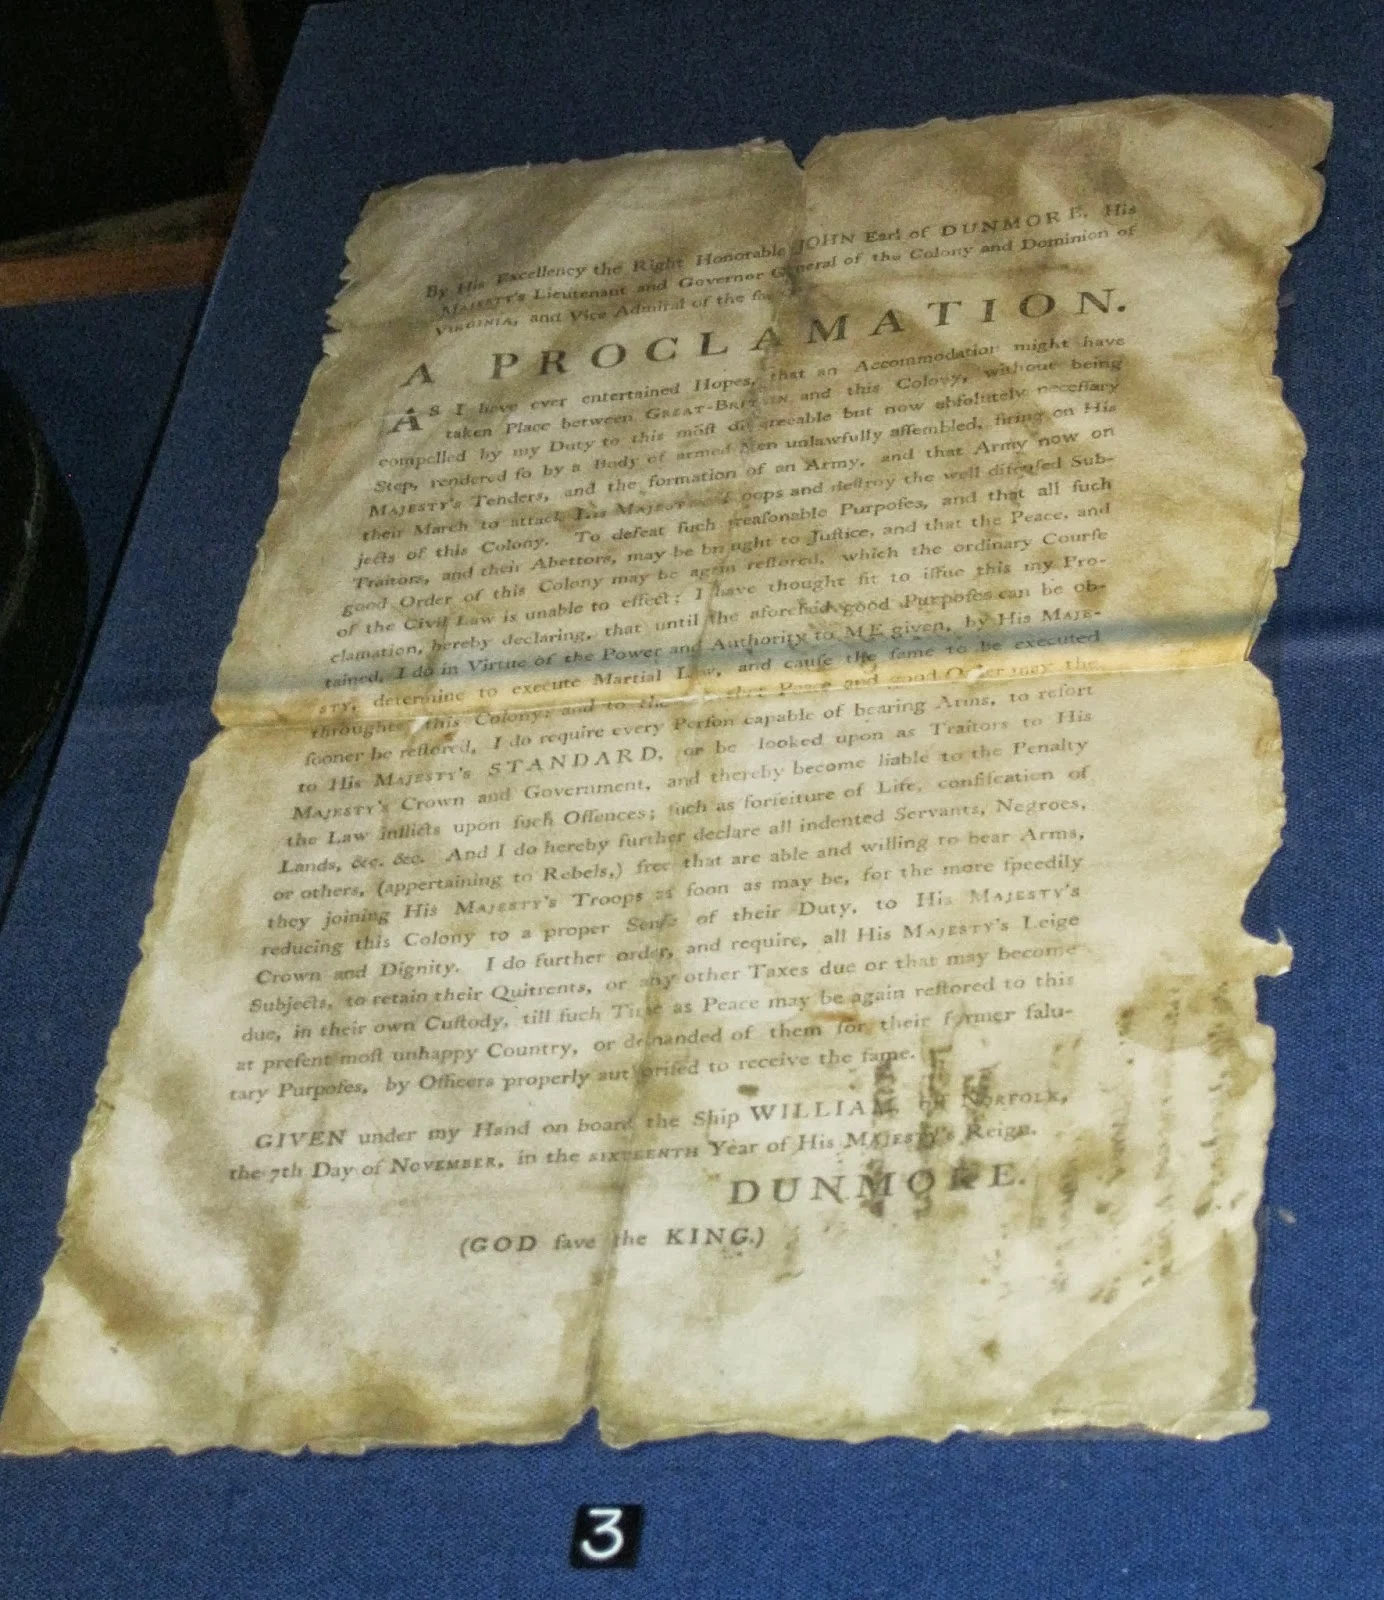 By His Excellency the Right Honorable JOHN Earl of DUNMORE, His
MAJESTY's Lieutenant and Governor General of the Colony and Dominion of
VIRGINIA, and Vice Admiral of the
A PROCLAMATION.
AS I have ever entertained Hopes, that an Accommodation might have
taken Place between GREAT-BRITAIN and this Colony, without being
compelled by my Duty to this moſt diſagreeable but now abſolutely neceſſary
Step, rendered ſo by a Body of armed Men unlawfully aſſembled, firing on His
MAJESTY's Tenders, and the formation of an Army, and that Army now on
their March to attack His MAJESTY's Troops and deſtroy the well diſpoſed Sub-
jects of this Colony. To defeat ſuch treaſonable Purpoſes, and that all ſuch
Traitors, and their Abettors, may be brought to Juſtice, and that the Peace, and
good Order of this Colony may be again reſtored, which the ordinary Courſe
of the Civil Law is unable to effect; I have thought fit to iſſue this my Pro-
clamation, hereby declaring, that until the aforeſaid good Purpoſes can be ob-
tained, I do in Virtue of the Power and Authority to ME given, by His MAJE-
STY, determine to execute Martial Law, and cauſe the ſame to be executed
throughout this Colony: and to the that Peace and good Order may the
ſooner be reſtored, I do require every Perſon capable of bearing Arms, to reſort
to His MAJESTY's STANDARD, or be looked upon as Traitors to His
MAJESTY's Crown and Government, and thereby become liable to the Penalty
the Law inflicts upon ſuch Offences; ſuch as forfeiture of Life, confiſcation of
Lands, &c. &c. And I do hereby further declare all indented Servants, Negroes,
or others, (appertaining to Rebels,) free that are able and willing to bear Arms,
they joining His MAJESTY's Troops as ſoon as may be, for the more ſpeedily
reducing this Colony to a proper Senſe of their Duty, to His MAJESTY's
Crown and Dignity. I do further order, and require, all His MAJESTY's Leige
Subjects, to retain their Quitrents, or any other Taxes due or that may become
due, in their own Cuſtody, till ſuch Time as Peace may be again reſtored to this
at preſent moſt unhappy Country, or demanded of them for their former ſalu-
tary Purpoſes, by Officers properly authoriſed to receive the ſame.
GIVEN under my Hand on board the Ship WILLIAM, off NORFOLK,
the 7th Day of NOVEMBER, in the SIXTEENTH Year of His MAJESTY's Reign.
DUNMORE.
(GOD ſave the KING.)
3